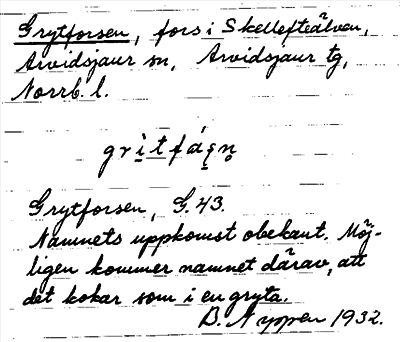 Grytforsen, fors i Skellefteälven,
Arvidsjaur sn, Arvidsjaur tg,
Norrb. l.
Grytforsen, G. 43.
Namnets uppkomst obekant. Möj-
ligen kommer namnet därav, att
det kokar som i en gryta.
B. Nyppen 1932.